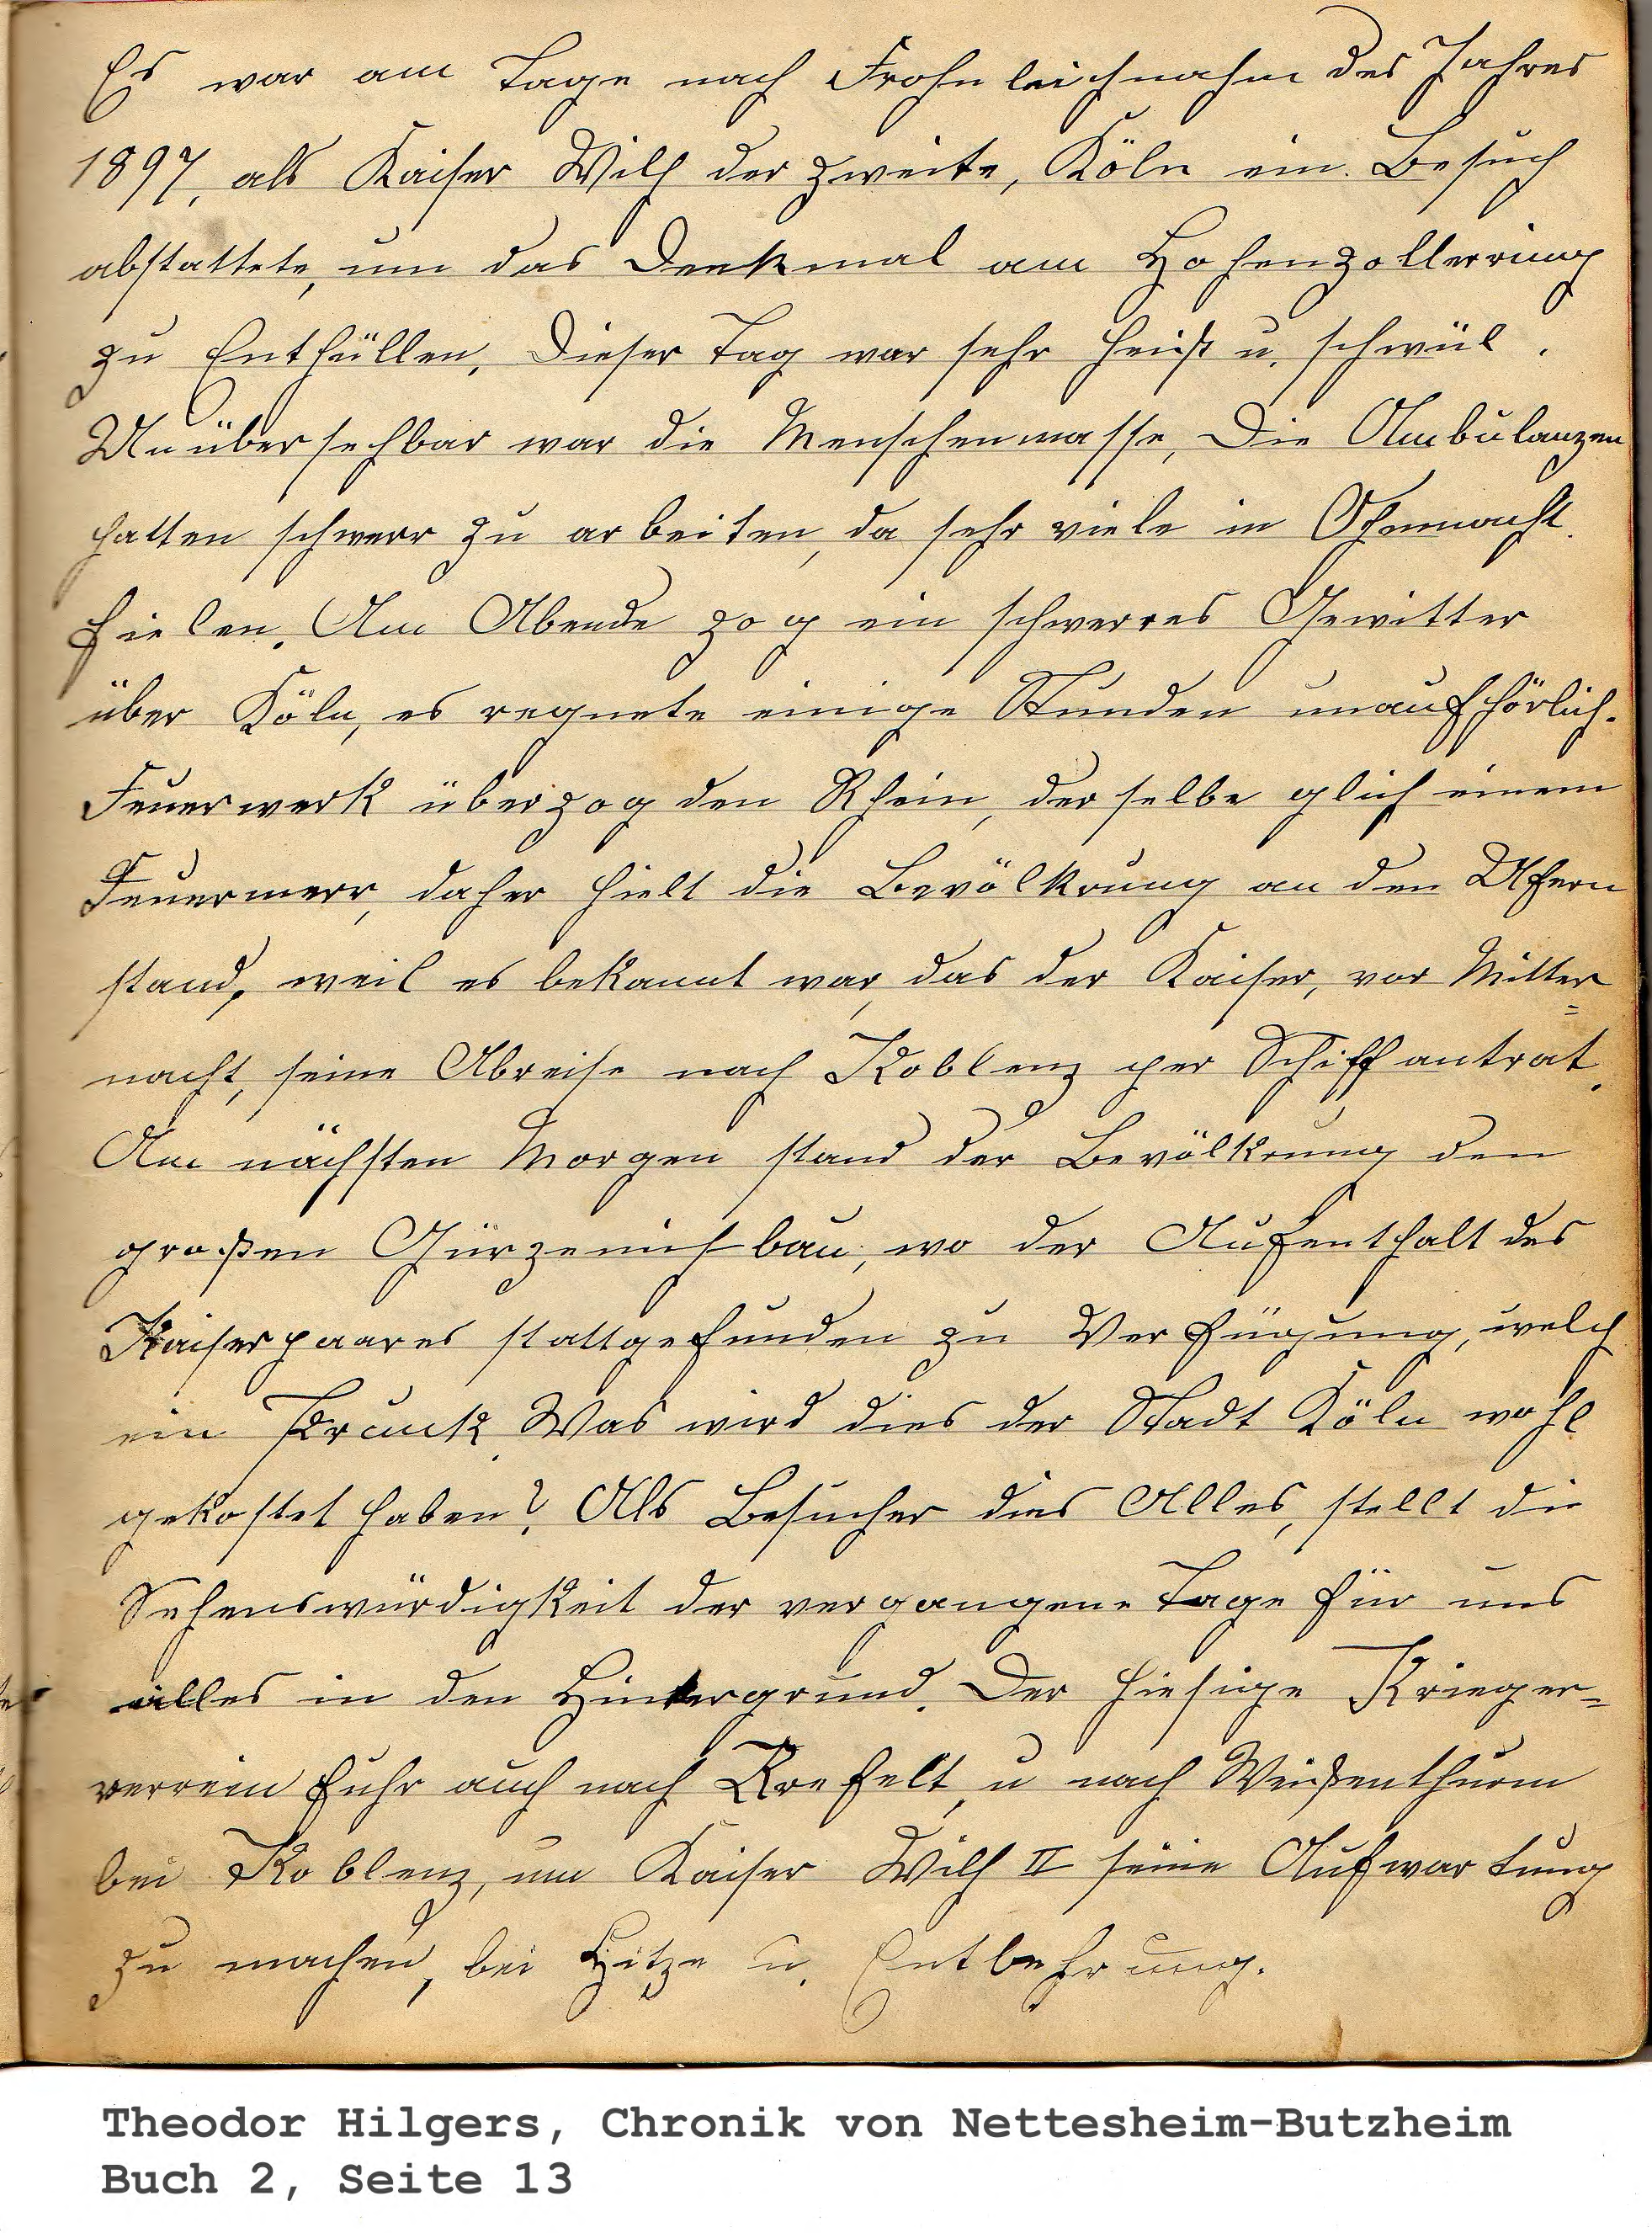 Es war am Tage nach Frohnleichnahm des Jahres
1897, als Kaiser Wilh der zweite, Köln ein. Besuch
abstattete, um das Denkmal am Hohenzollerring
zu Enthüllen, Dieser Tag war sehr heiß u. schwül.
Unübersehbar war die Menschenmasse, Die Ambulanzen
hatten schwerr zu arbeiten, da sehr viele in Ohnmacht.
fielen. Am Abende zog ein schwerres Gewitter
über Köln, es regnete einige Stunden unaufhörlich.
Feuerwerk überzog den Rhein, derselbe glich einem
Feuermerr, daher hielt die Bevölkrung an den Ufern
stand, weil es bekannt war, das der Kaiser, vor Mitter=
nacht, seine Abreise nach Koblenz per Schiff antrat.
Am nächsten Morgen stand der Bevölkrung den
großen Gürzenichbau, wo der Aufenthalt des
Kaiserpaares stattgefunden zu Verfügung, welch
ein Prunk. Was wird dies der Stadt Köln wohl
gekostet haben? Als Besucher dies Alles, stellt die
Sehenswürdigkeit der vergangene Tage für uns
alles in den Hintergrund. Der hiesige Krieger=
verrein fuhr auch nach Krefelt, u nach Weißenthurm
bei Koblenz, um Kaiser Wilh II seine Aufwartung
zu machen, bei Hitze u. Entbehrung.
Theodor Hilgers, Chronik von Nettesheim-Butzheim
Buch 2, Seite 13